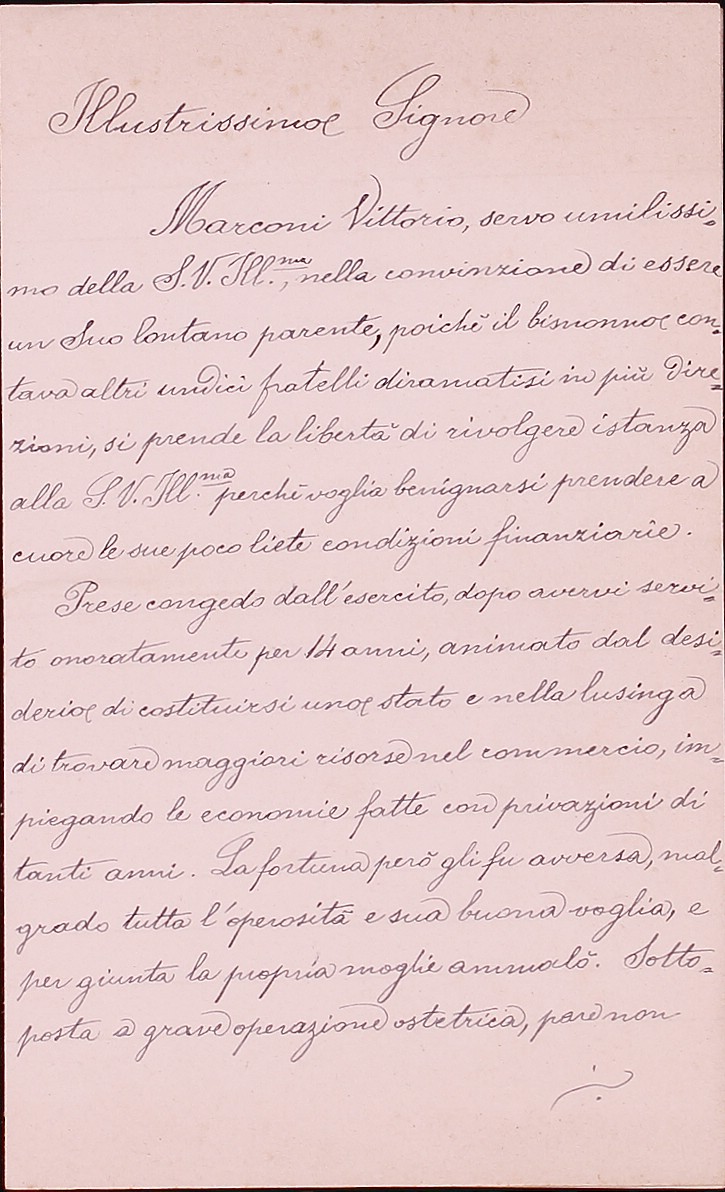 Illustrissimo Signore
Marconi Vittorio, servo umilissi=
mo della S.V. Ill.ma, nella convinzione di essere
un Suo lontano parente, poichè il bisnonno con=
tava altri undici fratelli diramatisi in più dire=
zioni, si prende la libertà di rivolgere istanza
alla S.V. Ill.ma perchè voglia benignarsi prendere a
cuore le sue poco liete condizioni finanziarie.
Prese congedo dall'esercito, dopo avervi servi=
to onoratamente per 14 anni, animato dal desi=
derio di costituirsi uno stato e nella lusinga
di trovare maggiori risorse nel commercio, im=
piegando le economie fatte con privazioni di
tanti anni. La fortuna però gli fu avversa, mal=
grado tutta l'operosità e sua buona voglia, e
per giunta la propria moglie ammalò. Sotto=
posta a grave operazione ostetrica, pare non